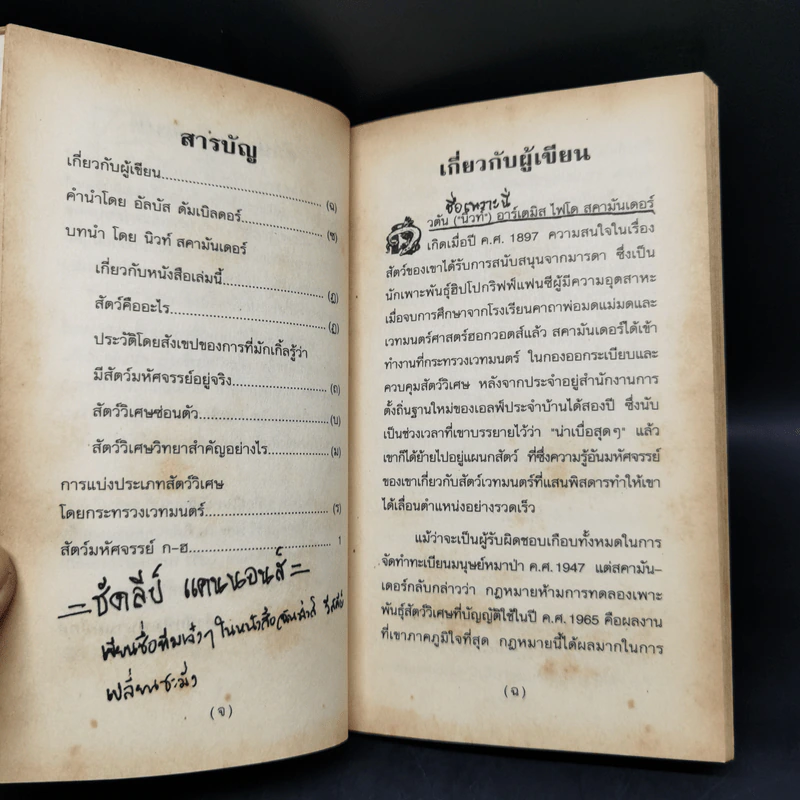 สารบัญ
เกี่ยวกับผู้เขียน (ฉ)
คำนำโดย อัลบัส ดัมเบิลดอร์ (ซ)
บทนำ โดย นิวท์ สคามันเดอร์
เกี่ยวกับหนังสือเล่มนี้ (ฎ)
สัตว์คืออะไร (ฏ)
ประวัติโดยสังเขปของการที่มักเกิ้ลรู้ว่า
มีสัตว์มหัศจรรย์อยู่จริง (ถ)
สัตว์วิเศษซ่อนตัว (บ)
สัตว์วิเศษวิทยาสำคัญอย่างไร (ม)
การแบ่งประเภทสัตว์วิเศษ
โดยกระทรวงเวทมนตร์ (ร)
สัตว์มหัศจรรย์ ก-ฮ 1
=ชัดลีย์ แคนนอนส์=
เขียนชื่อทีมเจ๋งๆ ในหนังสือ
เปลี่ยนซะมั่ง
(จ)
เกี่ยวกับผู้เขียน
ชื่อเพราะนี่
นิวตัน ("นิวท์") อาร์เตมิส ไฟโด สคามันเดอร์
เกิดเมื่อปี ค.ศ. 1897 ความสนใจในเรื่อง
สัตว์ของเขาได้รับการสนับสนุนจากมารดา ซึ่งเป็น
นักเพาะพันธุ์ฮิปโปกริฟฟ์แฟนซีผู้มีความอุตสาหะ
เมื่อจบการศึกษาจากโรงเรียนคาถาพ่อมดแม่มดและ
เวทมนตร์ศาสตร์ฮอกวอตส์แล้ว สคามันเดอร์ได้เข้า
ทำงานที่กระทรวงเวทมนตร์ ในกองออกระเบียบและ
ควบคุมสัตว์วิเศษ หลังจากประจำอยู่สำนักงานการ
ตั้งถิ่นฐานใหม่ของเอลฟ์ประจำบ้านได้สองปี ซึ่งนับ
เป็นช่วงเวลาที่เขาบรรยายไว้ว่า "น่าเบื่อสุดๆ" แล้ว
เขาก็ได้ย้ายไปอยู่แผนกสัตว์ ที่ซึ่งความรู้อันมหัศจรรย์
ของเขาเกี่ยวกับสัตว์เวทมนตร์ที่แสนพิสดารทำให้เขา
ได้เลื่อนตำแหน่งอย่างรวดเร็ว
แม้ว่าจะเป็นผู้รับผิดชอบเกือบทั้งหมดในการ
จัดทำทะเบียนมนุษย์หมาป่า ค.ศ.1947 แต่สคามัน-
เดอร์กลับกล่าวว่า กฎหมายห้ามการทดลองเพาะ
พันธุ์สัตว์วิเศษที่บัญญัติใช้ในปี ค.ศ.1965 คือผลงาน
ที่เขาภาคภูมิใจที่สุด กฎหมายนี้ได้ผลมากในการ
(ฉ)